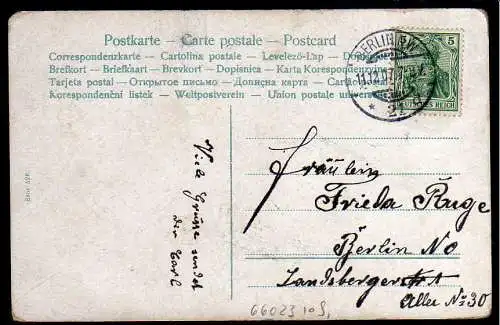 Postkarte - Carte postale - Postcard
Correspondenzkarte - Cartolina postale - Levelező-Lap -
Brefkort - Briefkaart - Brevkort - Dopisnica - Karta Korespondencyjna
Tarjeta postal - Открытое письмо - Дописна карта -
Korespondenční lístek - Weltpostverein - Union postale universelle
BERLIN SW
11.12.07
* 21
5
DEUTSCHES REICH
Fräulein
Frieda Ruge
Berlin No
Landsberger
Allee No 30
Viele Grüsse sendet
der Carl
66023 10 S,